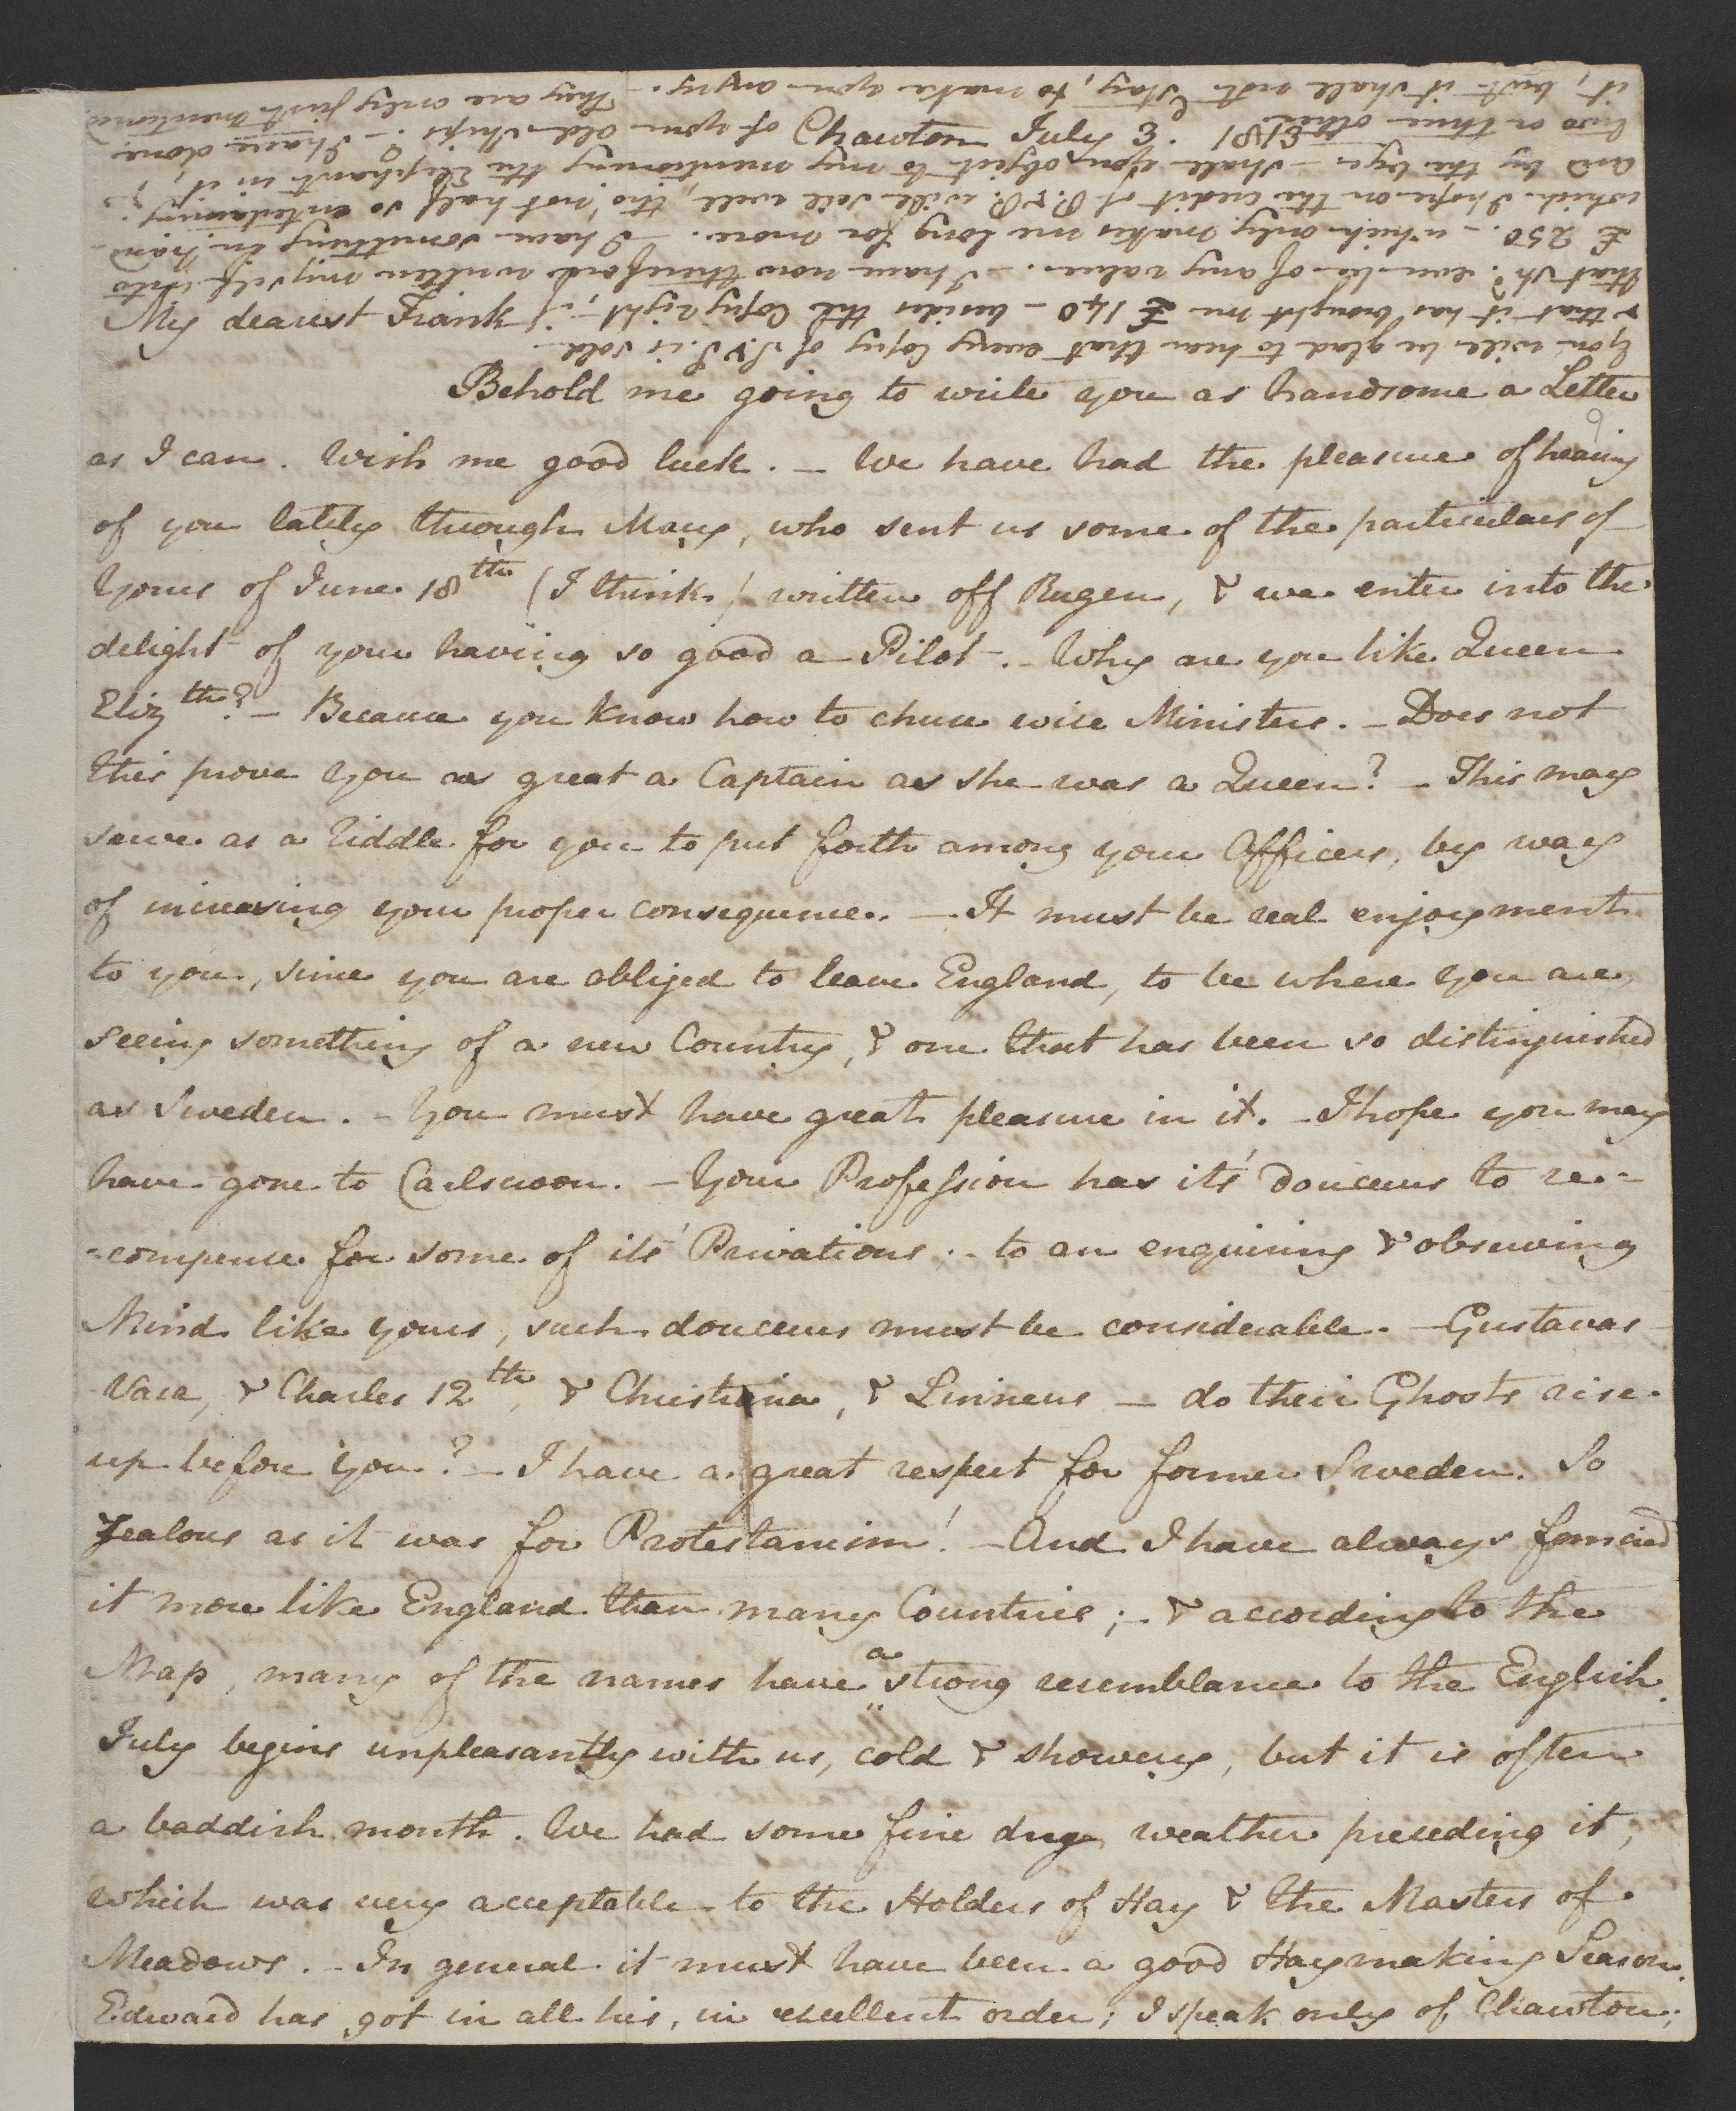 Chawton July 3. 1813
My dearest Frank
Behold me going to write you as handsome a Letter
as I can. Wish me good luck. — We have had the pleasure of hearing
of you lately through Mary, who sent us some of the particulars of
Yours of June 18th (I think) written off Rugen, & we enter into the
delight of your having so good a Pilot. — Why are you like Queen
Elizth? — Because you know how to chuse wise Ministers. — Does not
this prove you as great a Captain as she was a Queen? — This may
serve as a riddle for you to put forth among your Officers, by way
of increasing your proper consequence. — It must be real enjoyment
to you, since you are obliged to leave England, to be where you are,
seeing something of a new Country, & one that has been so distinguished
as Sweden. — You must have great pleasure in it. — I hope you may
have gone to Carlscroon. — Your Profession has it's douceurs to re=
=compense for some of it's Privations; — to an enquiring & observing
Mind like yours, such douceurs must be considerable. — Gustavas-
Vasa, & Charles 12th, & Christiana, & Linneus — do their Ghosts rise
up before You? — I have a great respect for former Sweden. So
zealous as it was for Protestanism! — And I have always fancied
it more like England than many Countries; — & according to the
Map, many of the names have a strong resemblance to the English.
July begins unpleasantly with us, cold & showery, but it is often
a baddish month. We had some fine dry weather preceding it,
which was very acceptable to the Holders of Hay & the Masters of
Meadows. — In general it must have been a good Haymaking Season.
Edward has got in all his, in excellent order; I speak only of Chawton;
You will be glad to hear that every Copy of S.&S. is sold
& that it has brought me £140 — besides the Copyright, if
that shd. ever be of any value. — I have now therefore written myself into
£250. — which only makes me long for more. — I have something in hand —
which I hope on the credit of P. & P. will sell well, tho' not half so entertaining.
And by the bye — shall you object to my mentioning the Elephant in it, &
two or three other of your old Ships? — I have done
it, but it shall not stay, to make you angry. — They are only just mentioned.